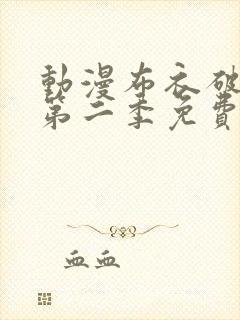 動漫布衣破
第二季免費
血血